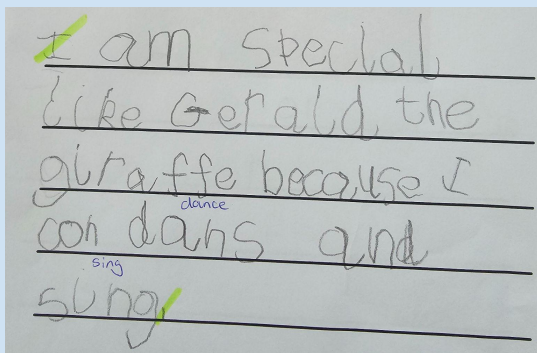 I am special
like Gerald the
giraffe because I
dance
can dans and
sing
sung